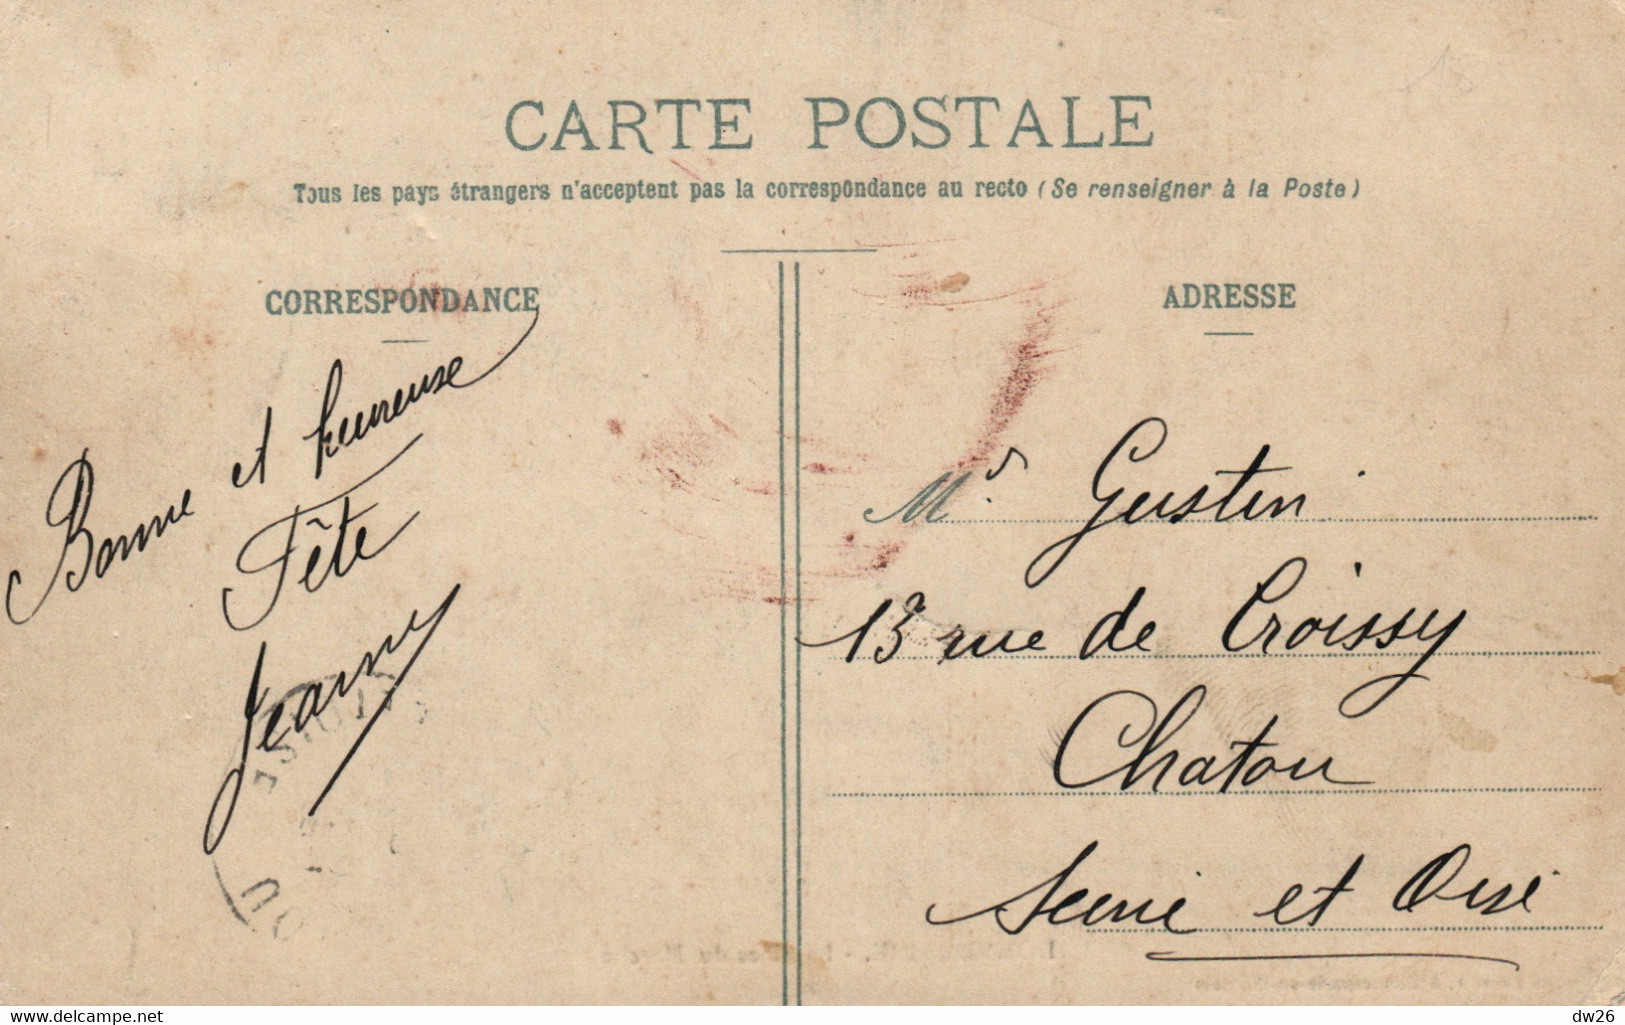 CARTE POSTALE
Tous les pays étrangers n'acceptent pas la correspondance au recto (Se renseigner à la Poste)
CORRESPONDANCE
Bonne et heureuse
Fête
Jeanny
ADRESSE
Mr. Gustin
13 rue de Croissy
Chatou
Seine et Oise
www.delcampe.net
dw26